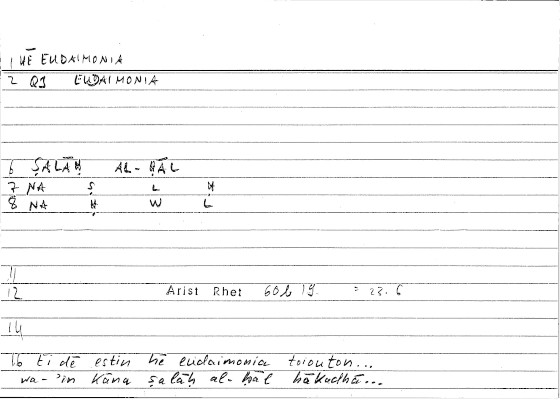 1 HĒ EUDAIMONIA
2 QI EUDAIMONIA
6 ṢALĀḤ AL-ḤĀL
7 NA Ṣ L Ḥ
8 NA Ḥ W L
11
12 Arist Rhet 60b 19. = 22.6
14
16 ti dē estin hē eudaimonia toiouton...
wa-'in kāna ṣalāḥ al-ḥāl hākadhā...